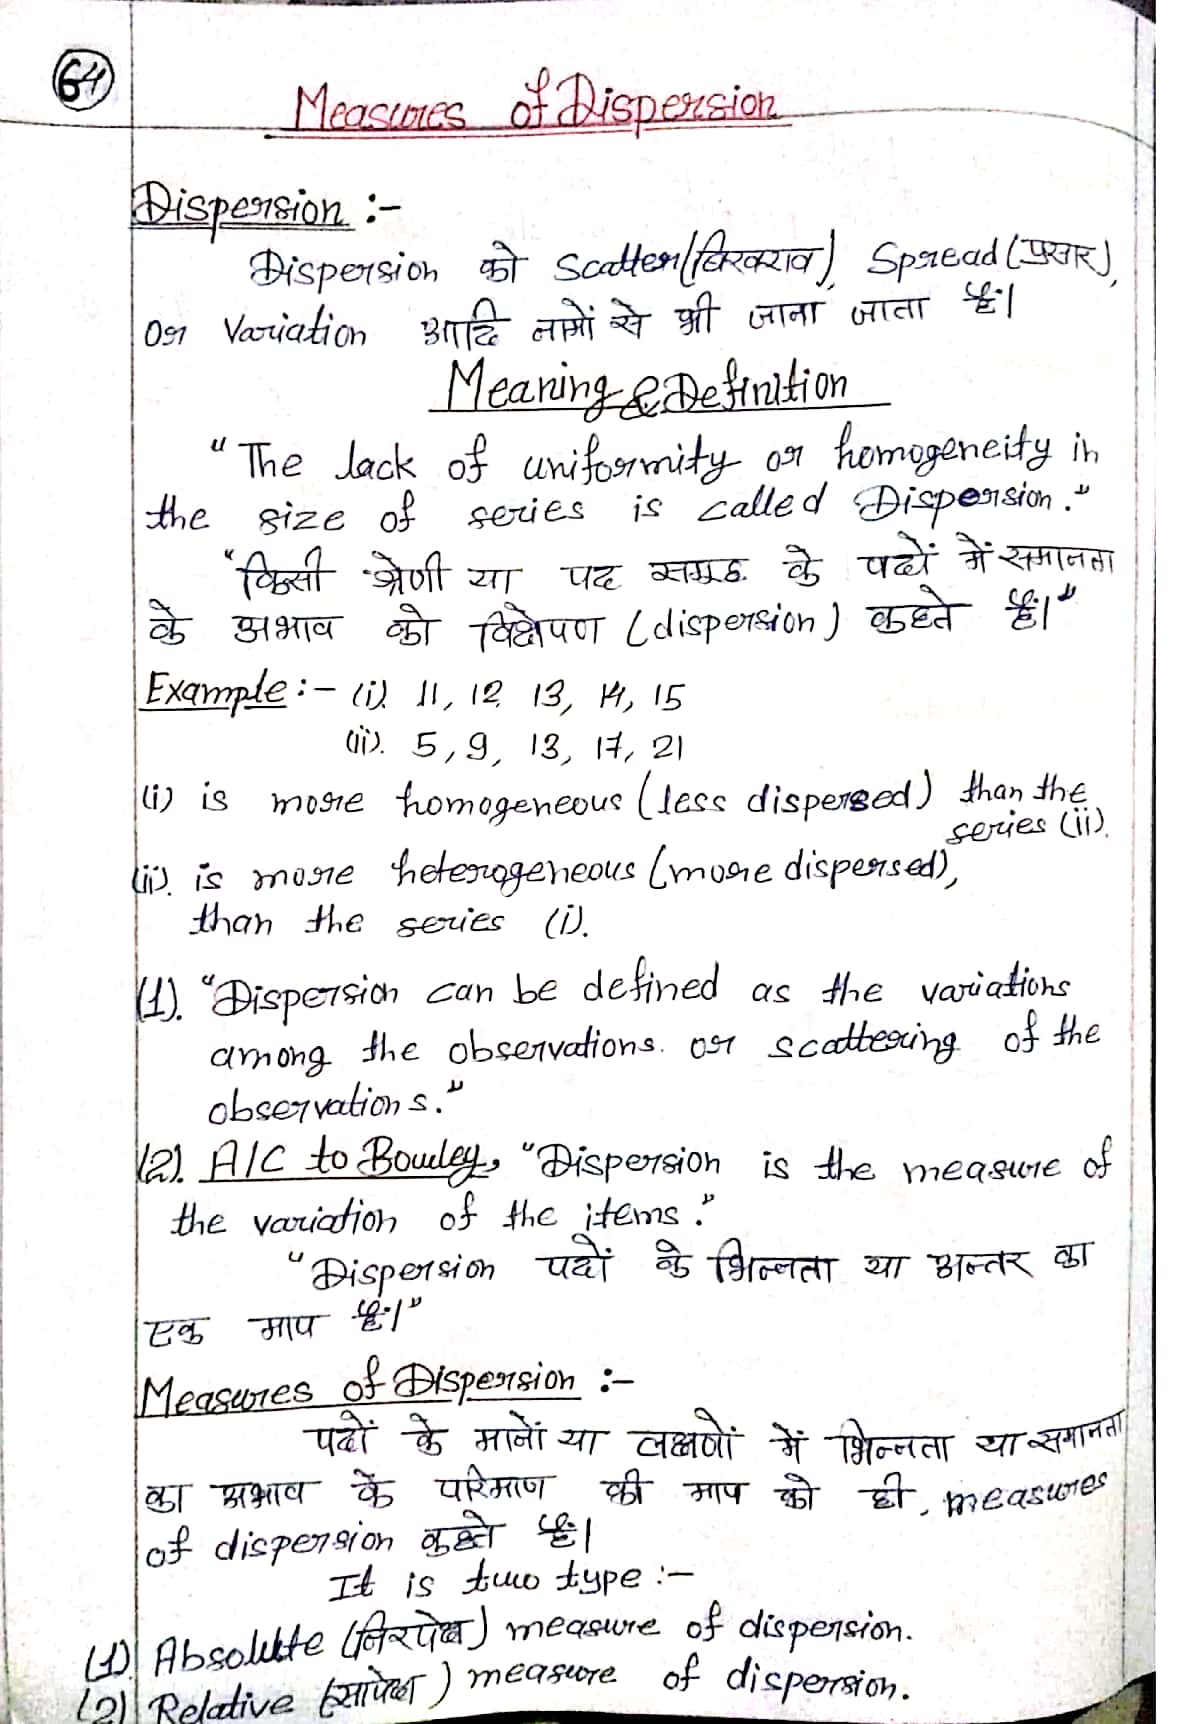 64
Measures of Dispersion
Dispersion :-
Dispersion को Scatter(बिखराव), Spread(प्रसार),
or Variation आदि नामों से भी जाना जाता है।
Meaning & Definition
"The lack of uniformity or homogeneity in
the size of series is called Dispersion."
"किसी श्रेणी या पद समूह के पदों में समानता
के अभाव को विक्षेपण (dispersion) कहते हैं।"
Example :- (i). 11, 12, 13, 14, 15
(ii). 5, 9, 13, 17, 21
(i) is more homogeneous (less dispersed) than the
series (ii).
(ii). is more heterogeneous (more dispersed),
than the series (i).
(1). "Dispersion can be defined as the variations
among the observations. or scattering of the
observations."
(2). A/C to Bowley, "Dispersion is the measure of
the variation of the items."
"Dispersion पदों के भिन्नता या अन्तर का
एक माप है।"
Measures of Dispersion :-
पदों के मानों या लक्षणों में भिन्नता या समानता
का अभाव के परिमाण की माप को ही, measures
of dispersion कहते हैं।
It is two type :-
(1) Absolute (निरपेक्ष) measure of dispersion.
(2) Relative (सापेक्ष) measure of dispersion.